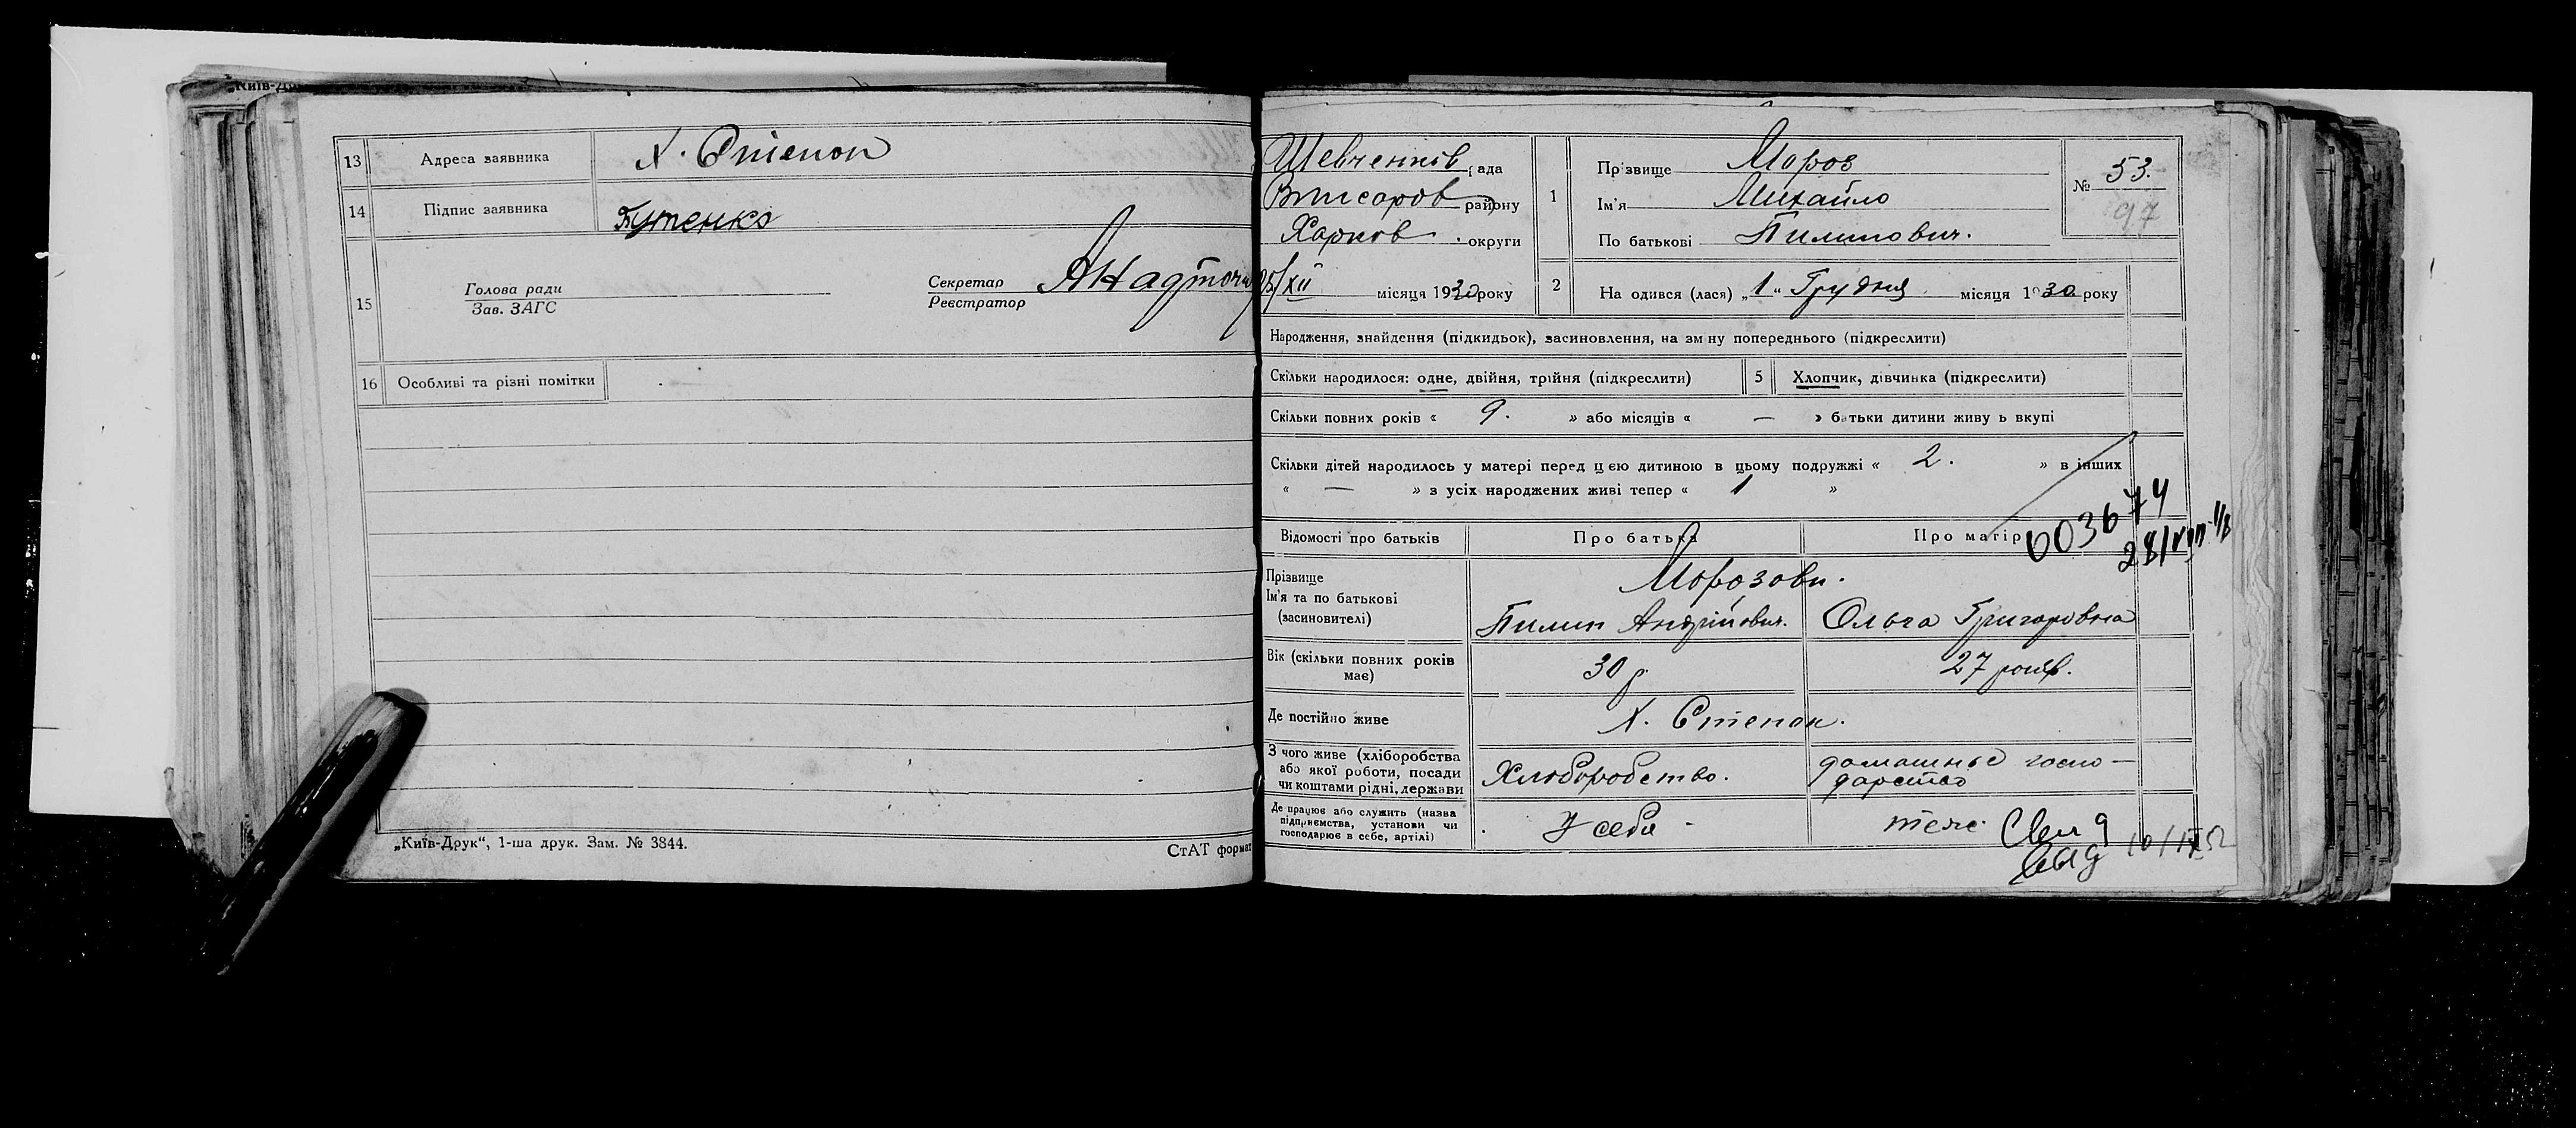 „Київ-Др
13 Адреса заявника Х. Степок
14 Підпис заявника Бутенко
15 Голова ради
Зав. ЗАГС
Секретар
Реєстратор
16 Особливі та різні помітки
„Київ-Друк“, 1-ша друк. Зам. № 3844.
СтАТ формат
Шевченків рада
району
Харков. округи
/XII місяця 1930 року
1 Прізвище Мороз
Ім'я Михайло
По батькові Пилипович.
№ 53.
97
2 На одився (лася) „1“ Грудня місяця 1930 року
Народження, знайдення (підкидьок), засиновлення, на зм ну попереднього (підкреслити)
Скільки народилося: одне, двійня, трійня (підкреслити) 5 Хлопчик, дівчинка (підкреслити)
Скільки повних років « 9. » або місяців « — » батьки дитини живу ь вкупі
Скільки дітей народилось у матері перед цією дитиною в цьому подружжі « 2. » в інших
« — » з усіх народжених живі тепер « 1 »
003674
28/VIII
Відомості про батьків Про батька Про матір
Прізвище Морозови.
Ім'я та по батькові
(засиновителі) Пилип Андрійович. Ольга Григоровна
Вік (скільки повних років має) 30 р. 27 років.
Де постійно живе Х. Степок.
З чого живе (хліборобства
або якої роботи, посади
чи коштами рідні, держави Хліборобство. домашньє госпо-
дарство
Де працює або служить (назва
підприємства, установи чи
господарює в себе, артілі) У себе теж.